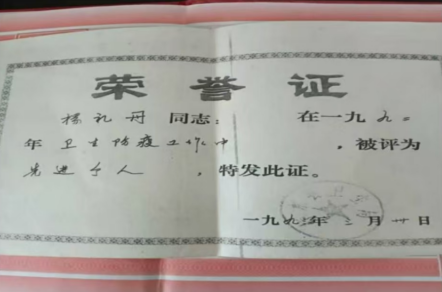 荣誉证
杨礼丹 同志： 在一九九〇
年卫生防疫工作中 ，被评为
先进个人 ，特发此证。
一九九 年 二月廿日